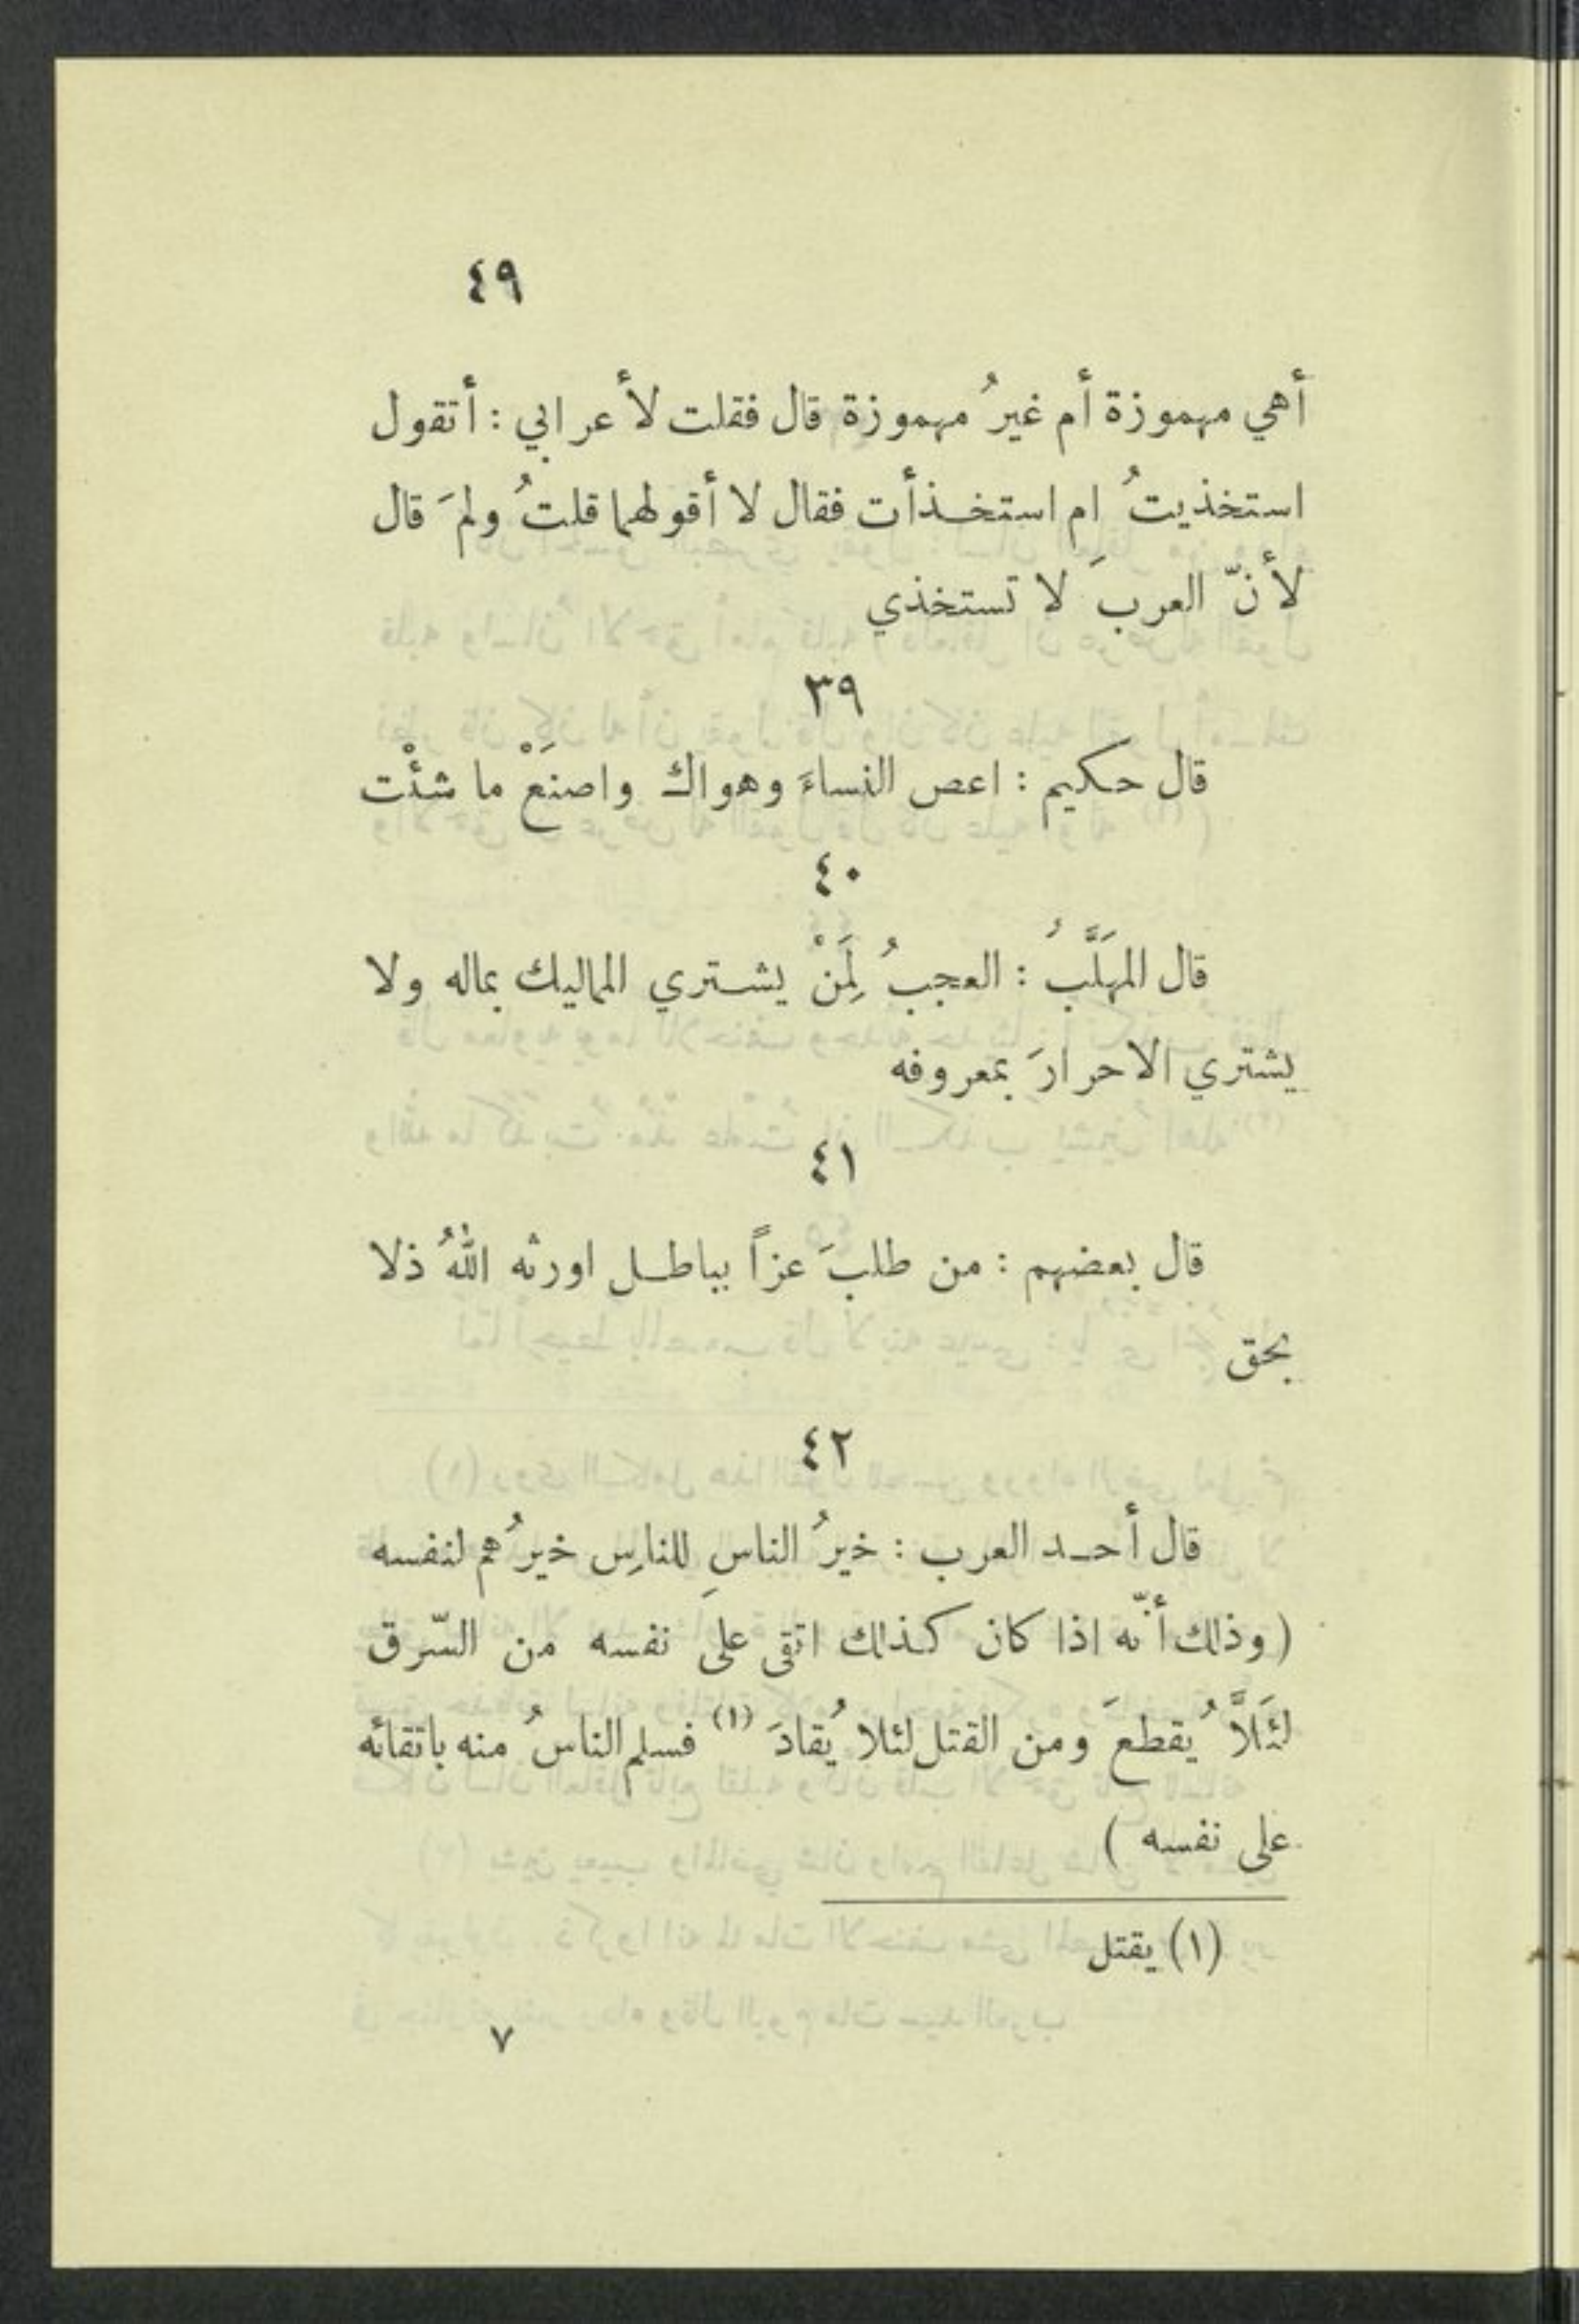 ٤٩
أهي مهموزة أم غيرُ مهموزة قال فقلت لأعرابي : أتقول
استخذيتُ ام استخذأت فقال لا أقولهما قلتُ ولمَ قال
لأنّ العربَ لا تستخذي
٣٩
قال حكيم : اعص النساءَ وهواك واصنَعْ ما شئْت
٤٠
قال المهَلَّبُ : العجبُ لِمَنْ يشتري المماليك بماله ولا
يشتري الاحرارَ بمعروفه
٤١
قال بعضهم : من طلبَ عزاً بباطل اورثه اللهُ ذلا
بحق
٤٢
قال أحد العرب : خيرُ الناسِ للناسِ خيرُهم لنفسه
( وذلك أنّه اذا كان كذلك اتقى على نفسه من السّرق
لئَلاَّ يُقطعَ ومن القتل لئلا يُقادَ (١) فسلم الناسُ منه باتقائه
على نفسه )
(١) يقتل
٧